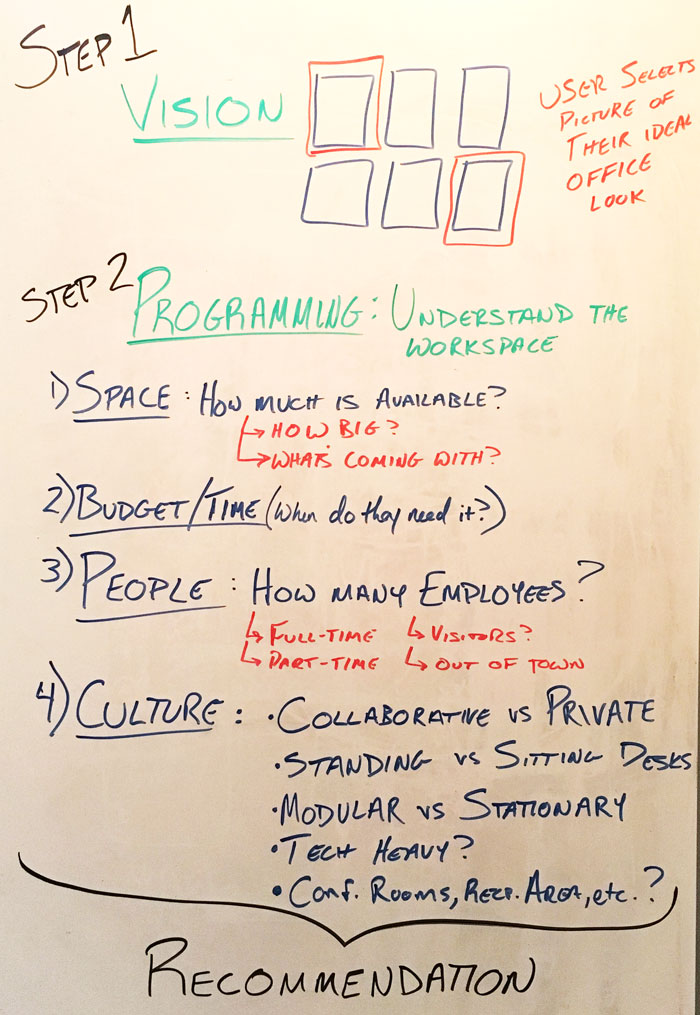 STEP 1
VISION
USER SELECTS
PICTURE OF
THEIR IDEAL
OFFICE
LOOK
STEP 2
PROGRAMMING: UNDERSTAND THE
WORKSPACE
1) SPACE: HOW MUCH IS AVAILABLE?
↳ HOW BIG?
↳ WHATS COMING WITH?
2) BUDGET/TIME (When do they need it?)
3) PEOPLE: HOW MANY EMPLOYEES?
↳ FULL-TIME ↳ VISITORS?
↳ PART-TIME ↳ OUT OF TOWN
4) CULTURE: • COLLABORATIVE vs PRIVATE
• STANDING vs SITTING DESKS
• MODULAR vs STATIONARY
• TECH HEAVY?
• Conf. Rooms, Recp. Area, etc.?
RECOMMENDATION